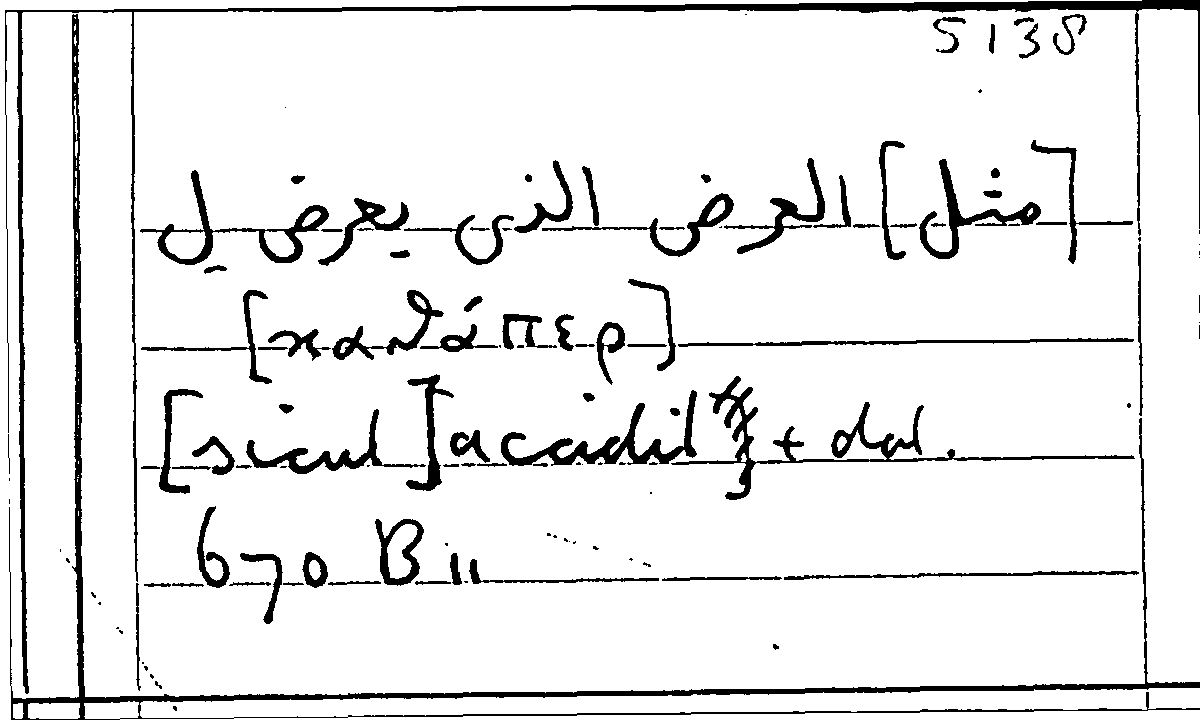 5138
[مثل] العرض الذي يعرض ل
[καθάπερ]
[sicut] accidit + dat.
670 B 11